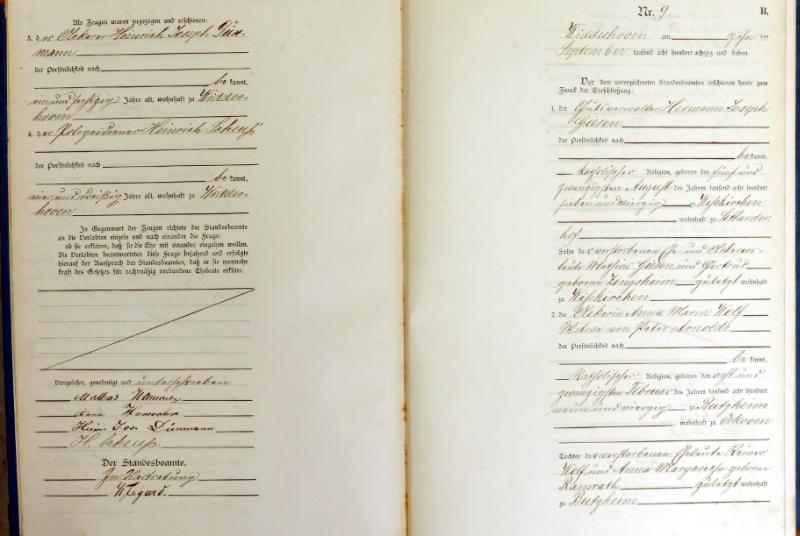 Als Zeugen waren zugezogen und erschienen:
3. der Ackerer Heinrich Joseph Dün-
mann
der Persönlichkeit nach
be kannt,
ein und sechzig Jahre alt, wohnhaft zu Widdes-
hoven
4. der Polizeidiener Heinrich
der Persönlichkeit nach
be kannt,
vier und dreißig Jahre alt, wohnhaft zu Widdes-
hoven
In Gegenwart der Zeugen richtete der Standesbeamte
an die Verlobten einzeln und nach einander die Frage:
ob sie erklären, daß sie die Ehe mit einander eingehen wollen.
Die Verlobten beantworteten diese Frage bejahend und erfolgte
hierauf der Ausspruch des Standesbeamten, daß er sie nunmehr
kraft des Gesetzes für rechtmäßig verbundene Eheleute erkläre.
Vorgelesen, genehmigt und unterschrieben
Anna
Heinr. Jos. Dünmann
H.
Der Standesbeamte.
In Vertretung
Nr. 9.
B.
Widdeshoven am ten
September tausend acht hundert achtzig und sieben
Vor dem unterzeichneten Standesbeamten erschienen heute zum
Zweck der Eheschließung:
1. der Gutsverwalter Hermann Joseph
Giesen
der Persönlichkeit nach
be kannt,
katholischer Religion, geboren den fünf und
zwanzigsten August des Jahres tausend acht hundert
sieben und vierzig zu Wißkirchen
, wohnhaft zu
hof
Sohn der verstorbenen Ehe- und Ackerers-
leute Giesen und Gertrud
geborene Zingsheim zuletzt wohnhaft
zu Wißkirchen
2. die Ackerin Anna Maria Wolf
Witwe von Peter Arnolds
der Persönlichkeit nach
be kannt,
katholischer Religion, geboren den acht und
zwanzigsten Februar des Jahres tausend acht hundert
neun und vierzig zu Butzheim
, wohnhaft zu Eckoven
Tochter der verstorbenen Eheleute Reiner
Wolf und Anna Margaretha geborene
Ramrath zuletzt wohnhaft
zu Butzheim